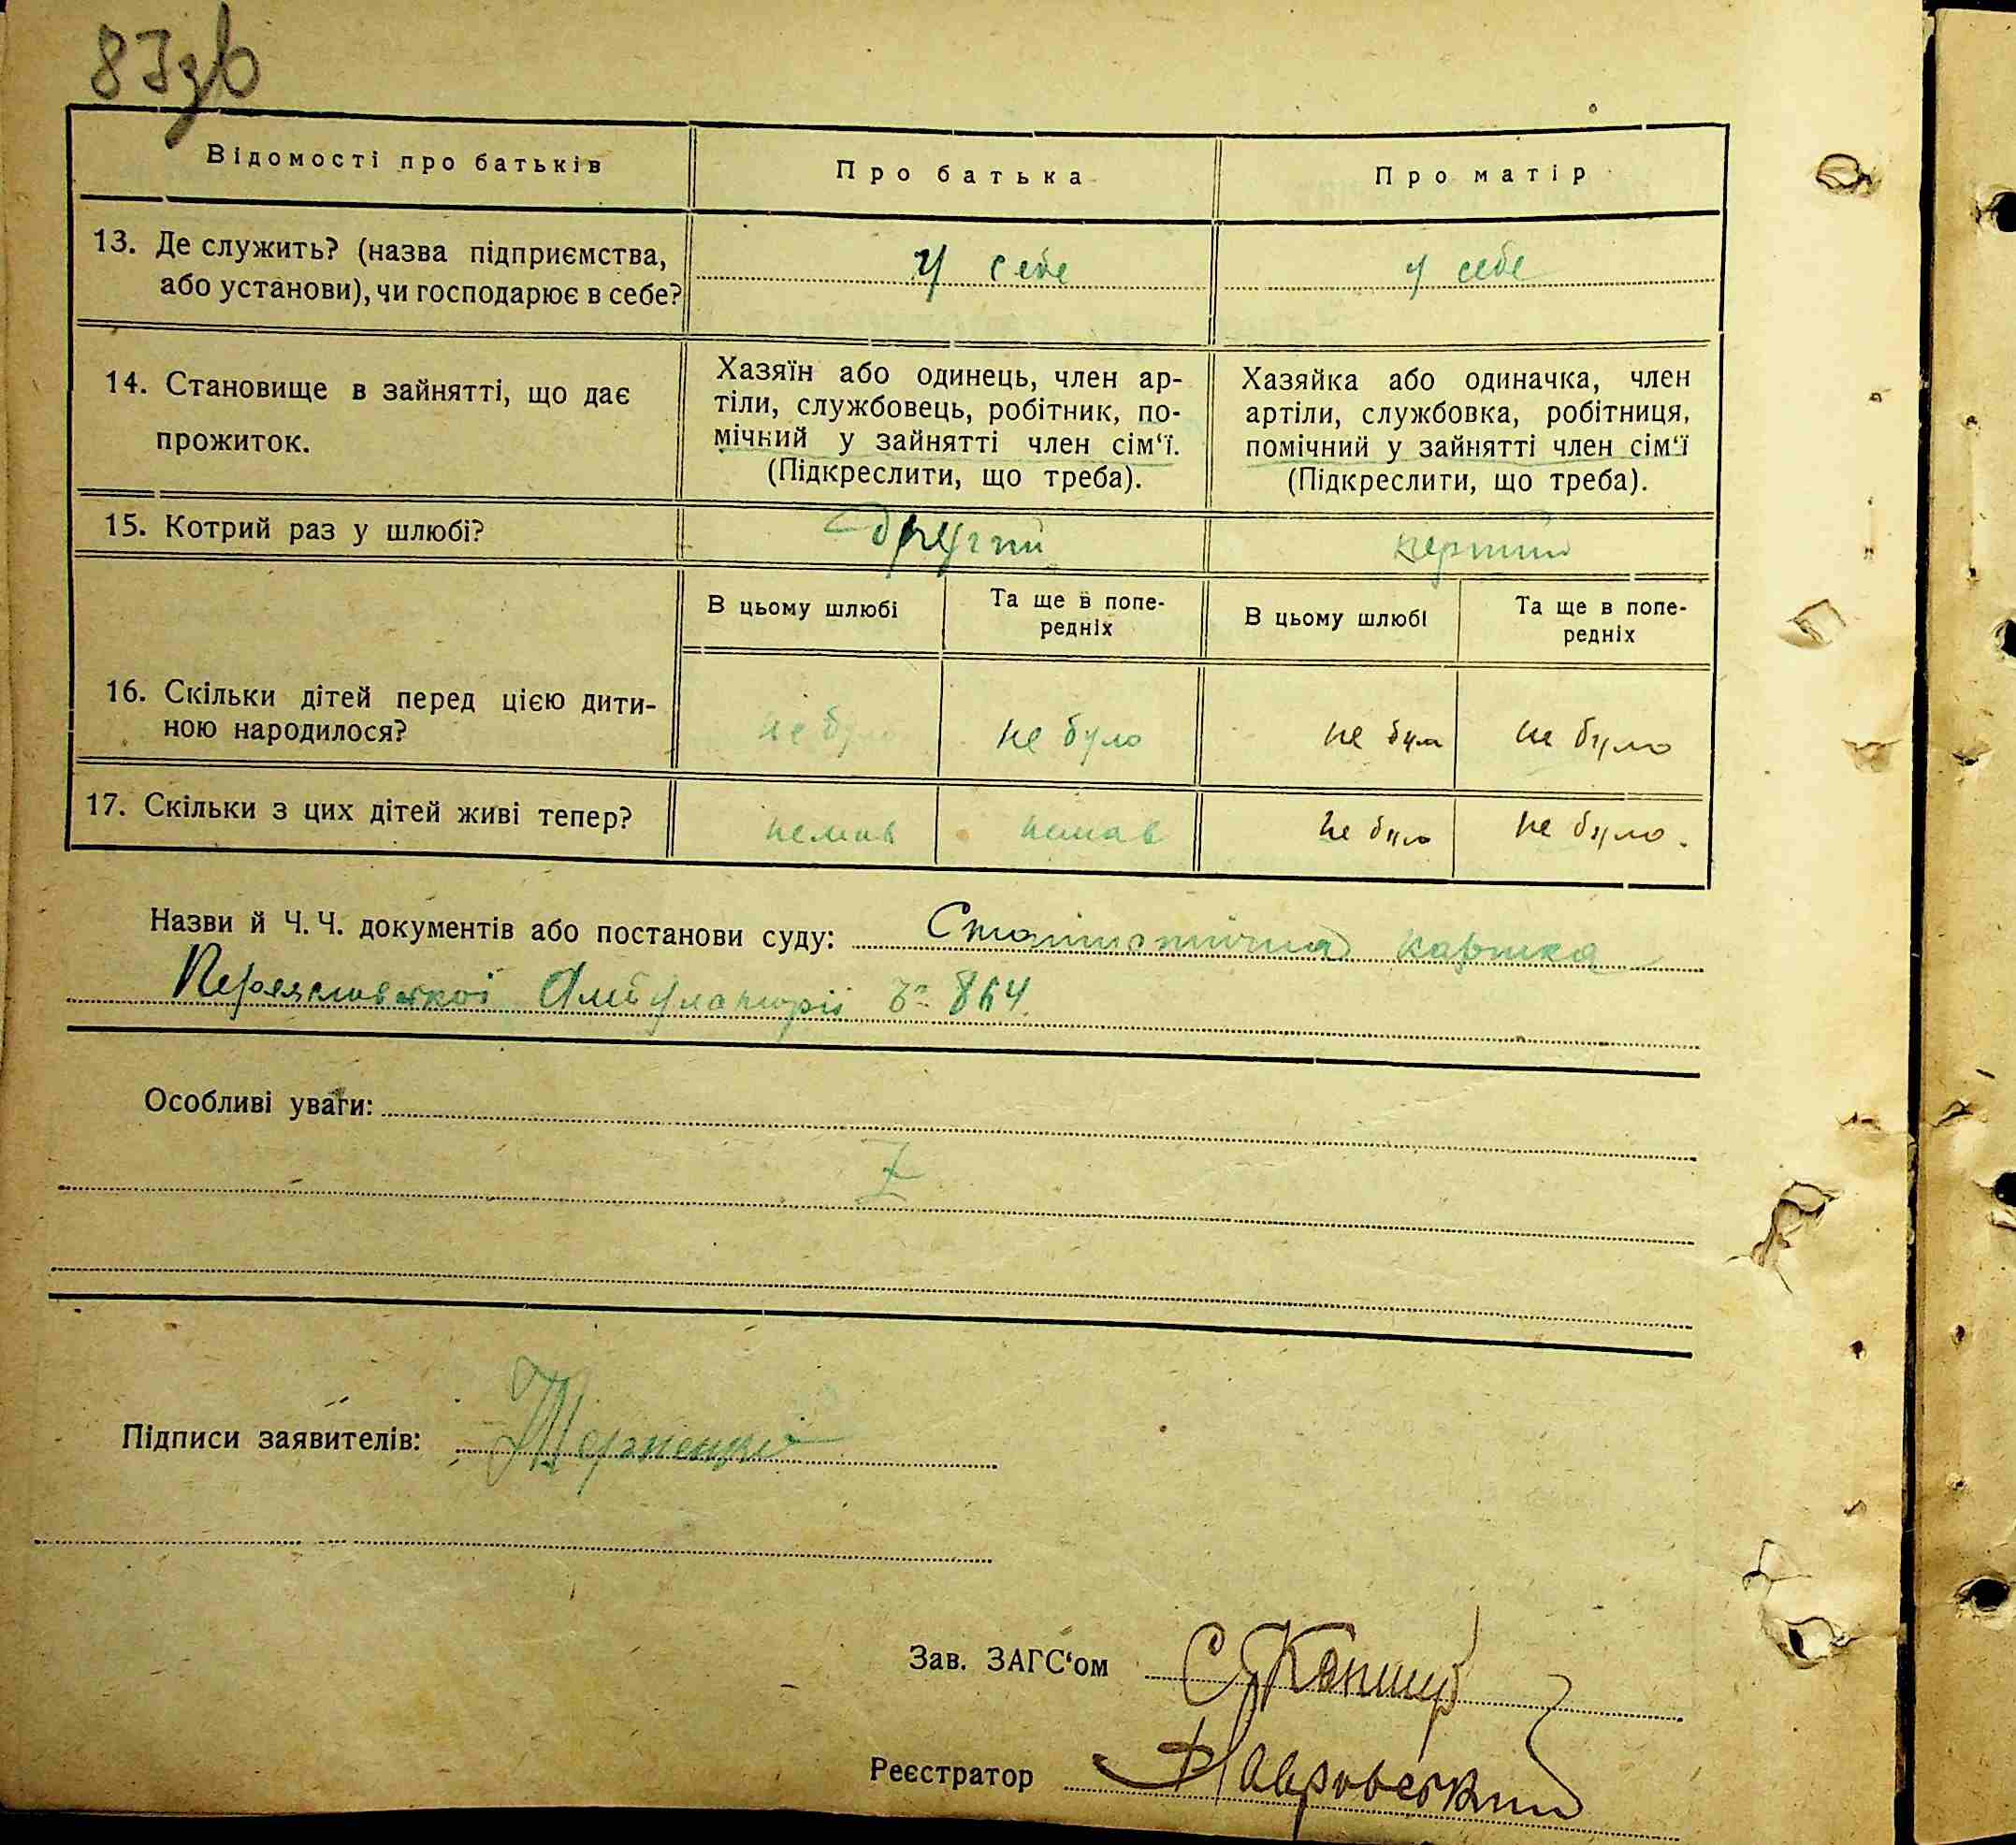 87зв
Відомості про батьків
Про батька
Про матір
13. Де служить? (назва підприємства,
або установи), чи господарює в себе?
У себе
у себе
14. Становище в зайнятті, що дає
прожиток.
Хазяїн або одинець, член ар-
тіли, службовець, робітник, по-
мічний у зайнятті член сім‘ї.
(Підкреслити, що треба).
Хазяйка або одиначка, член
артіли, службовка, робітниця,
помічний у зайнятті член сім‘ї
(Підкреслити, що треба).
15. Котрий раз у шлюбі?
другий
перший
В цьому шлюбі
Та ще в попе-
редніх
В цьому шлюбі
Та ще в попе-
редніх
16. Скільки дітей перед цією дити-
ною народилося?
не було
не було
не було
не було
17. Скільки з цих дітей живі тепер?
немав
немав
не було
не було.
Назви й Ч. Ч. документів або постанови суду: Статистична картка
Переяславської Амбулаторії Ч 864.
Особливі уваги:
Z
Підписи заявителів:
Зав. ЗАГС‘ом
Реєстратор